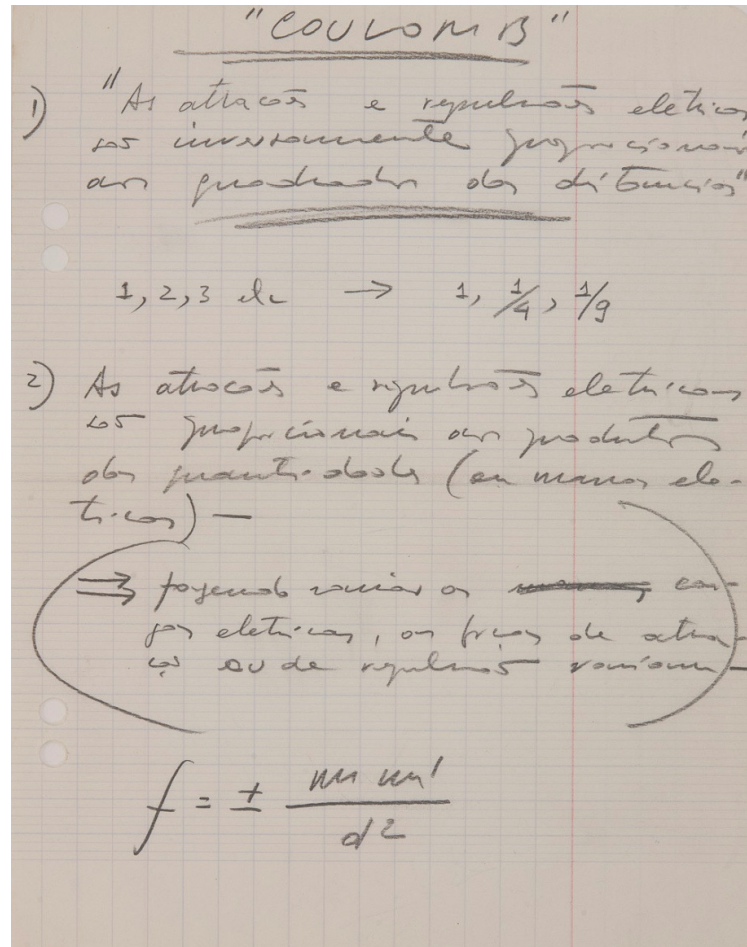 "COULOMB"
1) "As atracões e repulsões eletricas
são inversamente proporcionais
aos quadrados das distancias"
1, 2, 3 etc → 1, 1/4, 1/9
2) As atracões e repulsões eletricas
são proporcionais aos produtos
das quantidades (ou massas ele-
tricas) —
⇒ fazendo variar as car-
gas eletricas, as forcas de atra-
cão ou de repulsão variam —
f = ± m m' / d²